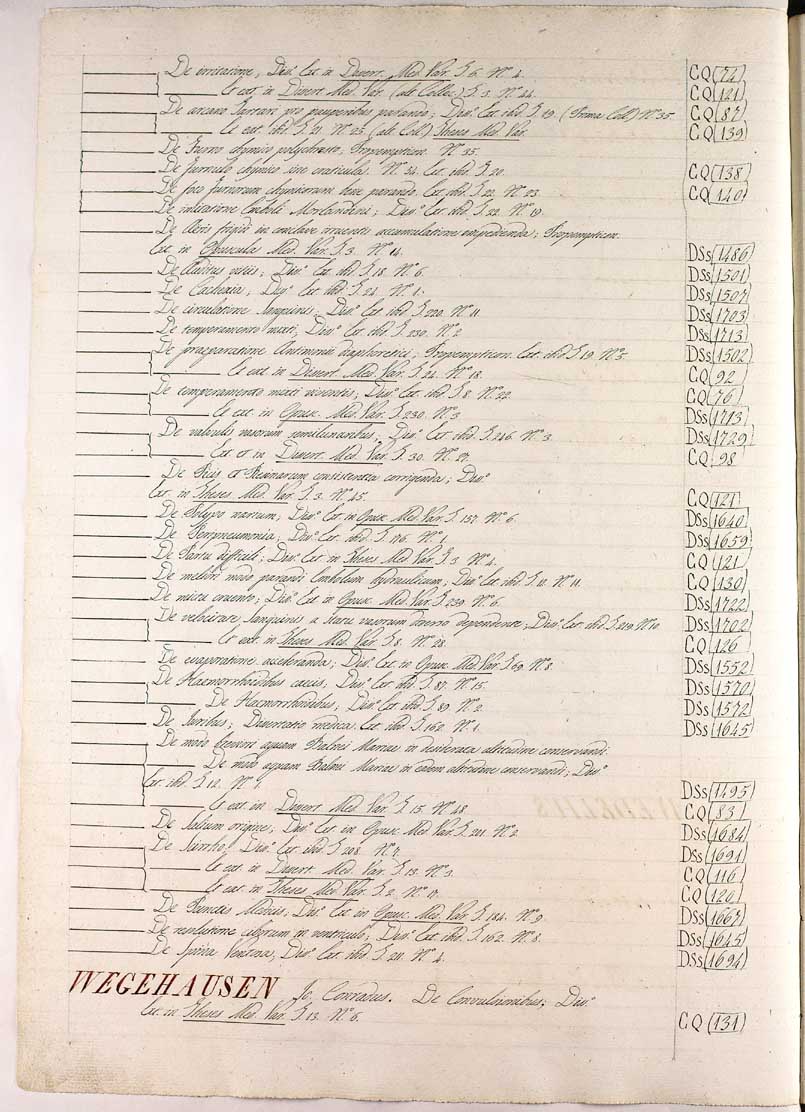 De irritatione; Diss.o Ext. in Dissert. Med. Var. T. 6. N.o 4. CQ 74
Et ext. in Dissert. Med. Var. (alt. Collec.) T. 3. N.o 44. CQ 121
De arcano Tartari pro pauperibus parando; Diss.o Ext. ibid. T. 19. (Prima Coll.) N.o 35. CQ 87
Et ext. ibid. T. 21. N.o 25. (alt. Coll.) Theses Med. Var. CQ 139
De Furno chymico polychresto; Propempticon. N.o 35.
De furnulo chymico sine craticula. N.o 34. Ext. ibid. T. 20. CQ 138
De foco furnorum chymicorum bene parando. Ext. ibid. T. 22. N.o 23. CQ 140
De intricatione Emboli Morlandini; Diss.o Ext. ibid. T. 22. N.o 19.
De Aeris frigidi in conclave irruentis accumulatione impedienda; Propempticon.
Ext. in Opuscula Med. Var. T. 3. N.o 14. DSs 1486
De Auditus vitiis; Diss.o Ext. ibid. T. 18. N.o 6. DSs 1501
De Cachexia; Diss.o Ext. ibid. T. 24. N.o 1. DSs 1507
De circulatione Sanguinis; Diss.o Ext. ibid. T. 220. N.o 11. DSs 1703
De temperamento mixti; Diss.o Ext. ibid. T. 230. N.o 2. DSs 1713
De praeparatione Antimonii diaphoretici; Propempticon. Ext. ibid. T. 19. N.o 5. DSs 1502
Et ext. in Dissert. Med. Var. T. 24. N.o 18. CQ 92
De temperamento mixti viventis; Diss.o Ext. ibid. T. 8. N.o 22. CQ 76
Et ext. in Opusc. Med. Var. T. 230. N.o 3. DSs 1713
De valvulis vasorum semilunaribus; Diss.o Ext. ibid. T. 246. N.o 3. DSs 1729
Ext. et in Dissert. Med. Var. T. 30. N.o 27. CQ 98
De Picis et Resinarum consistentia corrigenda; Diss.o
Ext. in Theses Med. Var. T. 3. N.o 45. CQ 121
De Polypo narium; Diss.o Ext. in Opusc. Med. Var. T. 157. N.o 6. DSs 1640
De Peripneumonia; Diss.o Ext. ibid. T. 176. N.o 1. DSs 1659
De Partu difficili; Diss.o Ext. in Theses Med. Var. T. 3. N.o 4. CQ 121
De meliori modo parandi Embolum hydraulicum; Diss.o Ext. ibid. T. 12. N.o 11. CQ 130
De mictu cruento; Diss.o Ext. in Opusc. Med. Var. T. 239. N.o 6. DSs 1722
De velocitate Sanguinis a statu vasorum diverso dependente; Diss.o Ext. ibid. T. 219. N.o 10. DSs 1702
Et ext. in Theses Med. Var. T. 8. N.o 28. CQ 126
De evaporatione acceleranda; Diss.o Ext. in Opusc. Med. Var. T. 69. N.o 8. DSs 1552
De Haemorrhoidibus caecis; Diss.o Ext. ibid. T. 87. N.o 15. DSs 1570
De Haemorrhoidibus; Diss.o Ext. ibid. T. 89. N.o 2. DSs 1572
De Puribus; Dissertatio medica. Ext. ibid. T. 162. N.o 1. DSs 1645
De modo leviori aquam Balnei Mariae in desiderata altitudine conservandi.
De modo aquam Balnei Mariae in eadem altitudine conservandi; Diss.o
Ext. ibid. T. 12. N.o 1. DSs 1495
Et ext. in Dissert. Med. Var. T. 15. N.o 18. CQ 83
De Salium origine; Diss.o Ext. in Opusc. Med. Var. T. 201. N.o 2. DSs 1684
De Scirrho; Diss.o Ext. ibid. T. 208. N.o 7. DSs 1691
Et ext. in Dissert. Med. Var. T. 13. N.o 3. CQ 116
Et ext. in Theses Med. Var. T. 2. N.o 17. CQ 120
De Sanctis Medicis; Diss.o Ext. in Opusc. Med. Var. T. 184. N.o 9. DSs 1667
De resolutione ciborum in ventriculo; Diss.o Ext. ibid. T. 162. N.o 8. DSs 1645
De Spina Ventosa; Diss.o Ext. ibid. T. 211. N.o 4. DSs 1694
WEGEHAUSEN Jo. Conradus. De Convulsionibus; Diss.o
Ext. in Theses Med. Var. T. 13. N.o 6. CQ 131